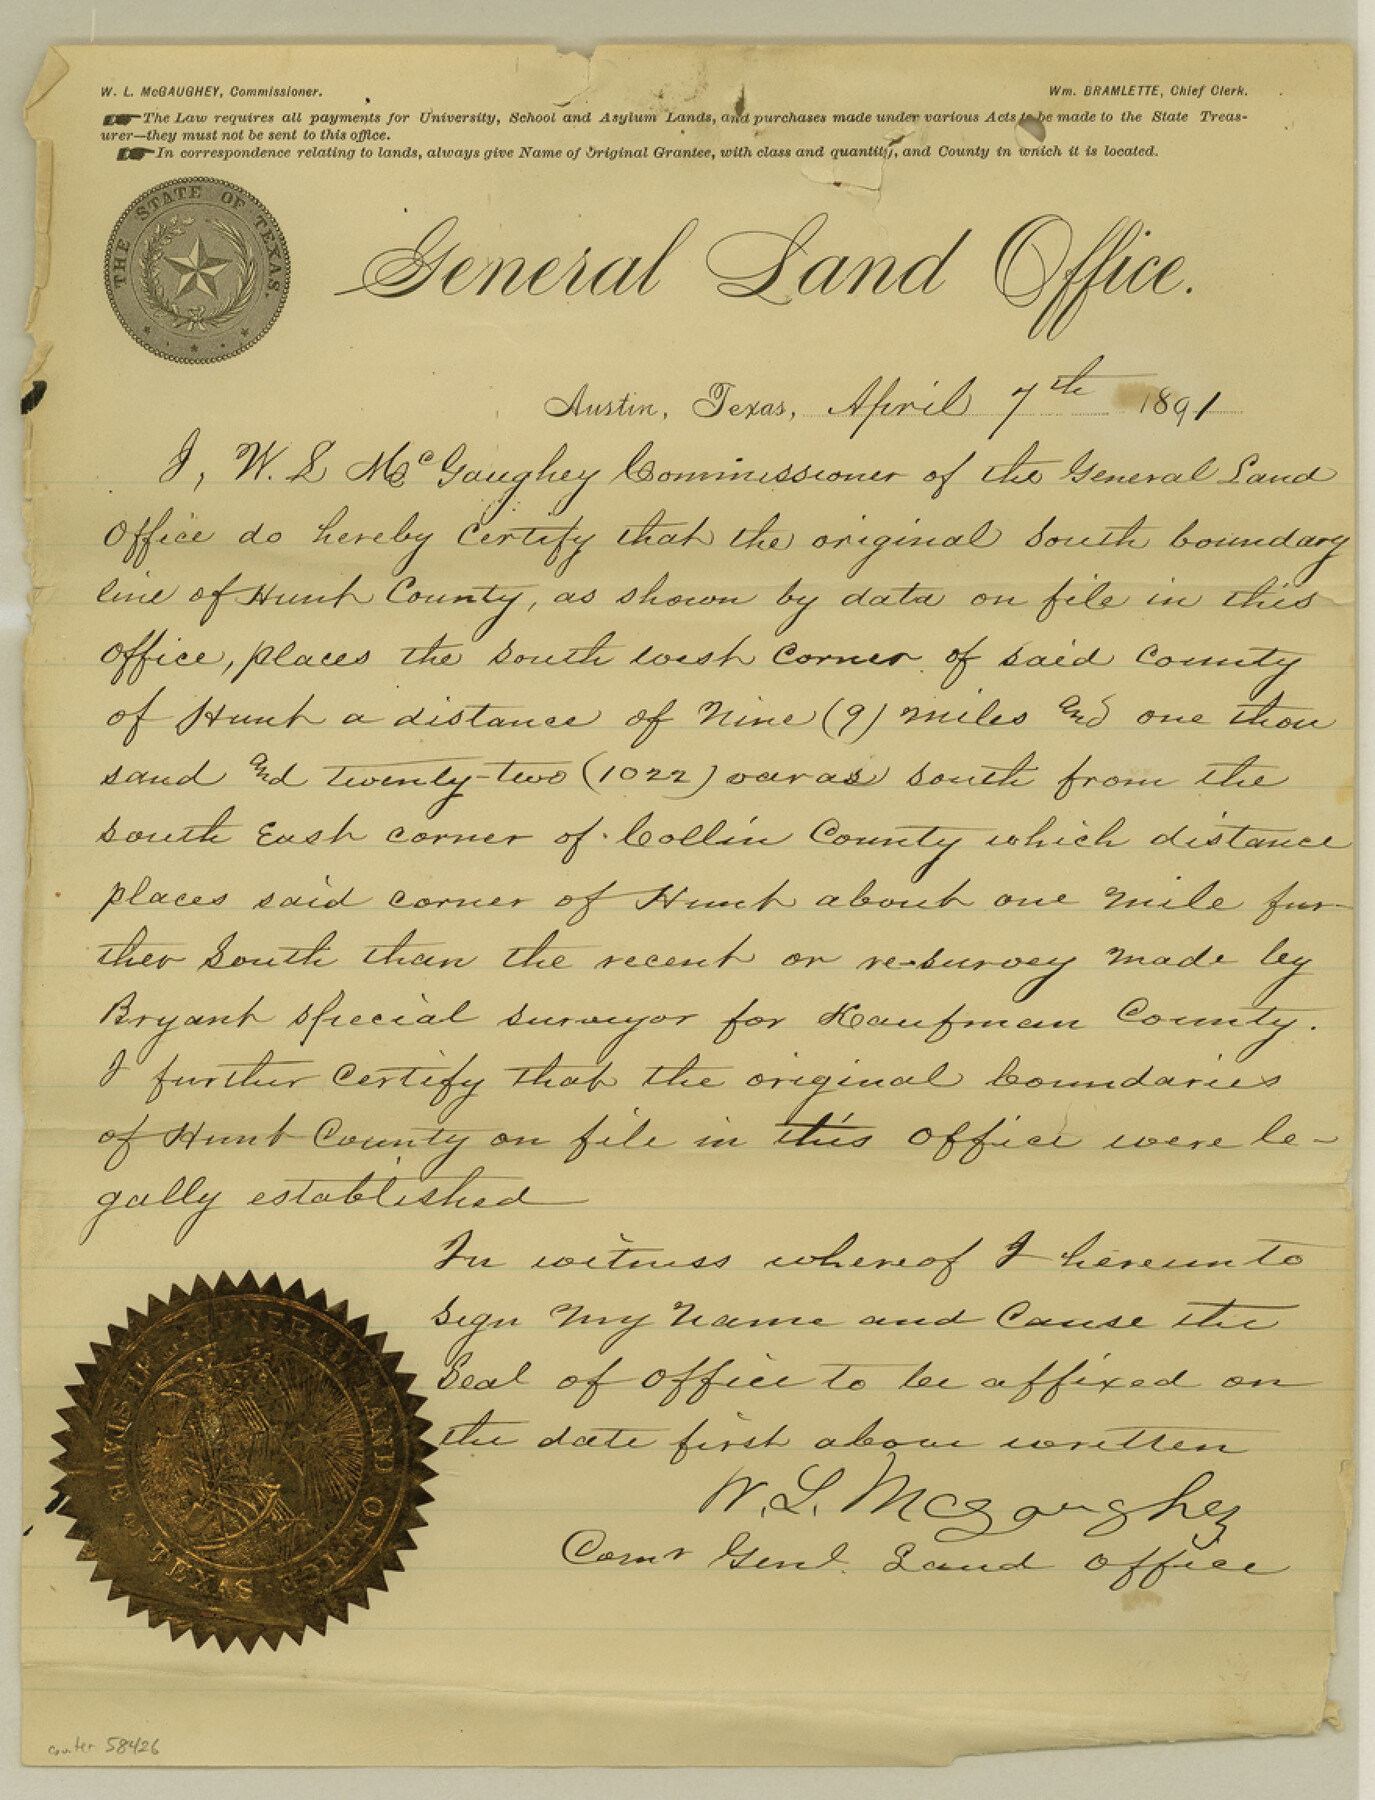 W. L. McGAUGHEY, Commissioner.
Wm. BRAMLETTE, Chief Clerk.
The Law requires all payments for University, School and Asylum Lands, and purchases made under various Acts to be made to the State Treas-
urer—they must not be sent to this office.
In correspondence relating to lands, always give Name of Original Grantee, with class and quantity, and County in which it is located.
THE STATE OF TEXAS.
General Land Office.
Austin, Texas, April 7th 1891
I, W. L McGaughey Commissioner of the General Land
Office do hereby Certify that the original South boundary
line of Hunt County, as shown by data on file in this
office, places the South west Corner of said County
of Hunt a distance of Nine (9) miles and one thou
sand and twenty-two (1022) varas south from the
South East corner of Collin County which distance
places said corner of Hunt about one mile fur-
ther South than the recent or re-survey made by
Bryant special surveyor for Kaufman County.
I further Certify that the original boundaries
of Hunt County on file in this Office were le-
gally established
In witness whereof I hereunto
sign my name and Cause the
Seal of Office to be affixed on
the date first above written
W. L. McGaughey
Comr Genl. Land Office
GENERAL LAND OFFICE
STATE OF TEXAS
counter 58426